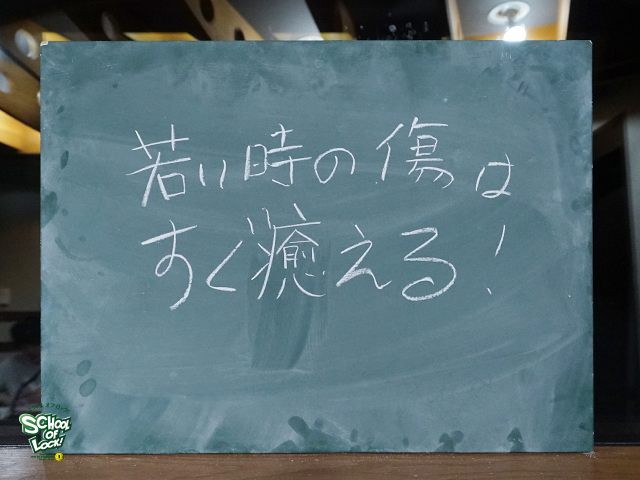 若い時の傷は
すぐ癒える!
SCHOOL
OF
LOCK!